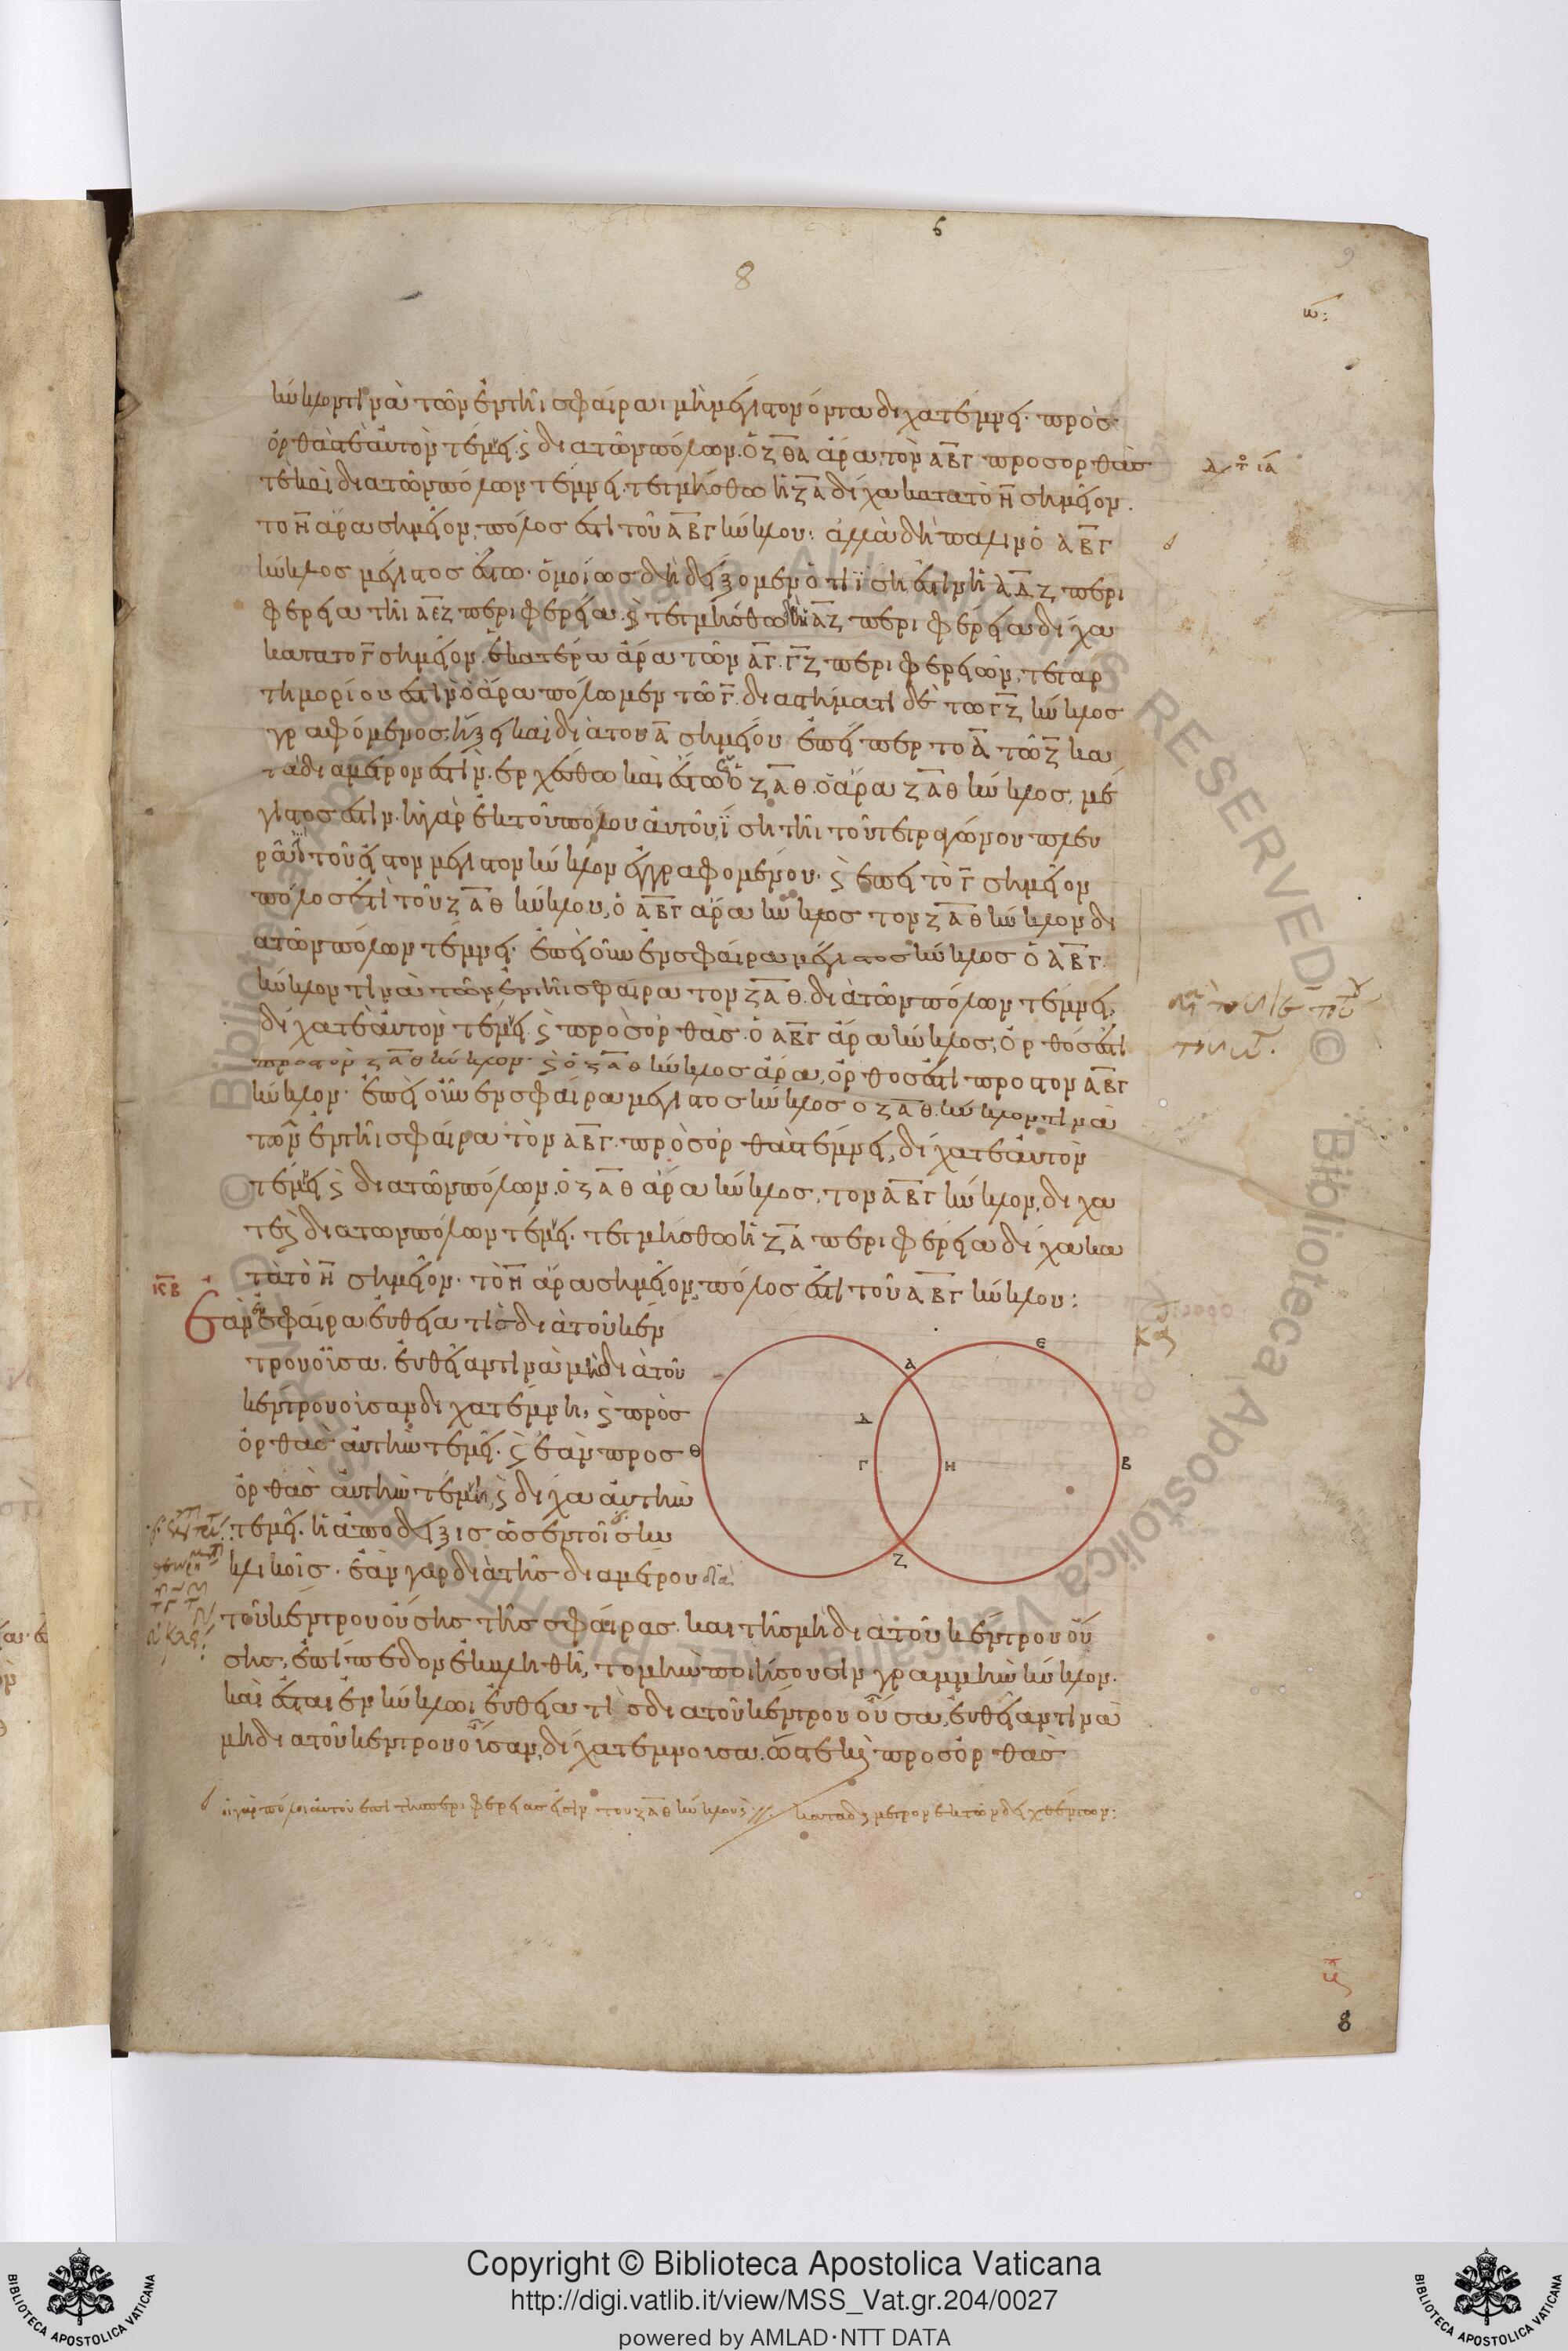 6
8
9
ω̅:
κύκλον τινὰ τῶν ἐν τῆι σφαίραι μὴ μέγιστον ὄντα δίχα τέμνει. πρὸς
ὀρθάς τε αὐτὸν τέμνει. ϗ διὰ τῶν πόλων. ὁ ΖΘΑ ἄρα τὸν ΑΒΓ πρὸς ὀρθάς
τε καὶ διὰ τῶν πόλων τέμνει. τετμήσθω ἡ ΖΑ δίχα κατὰ τὸ Η σημεῖον.
τὸ Η ἄρα σημεῖον, πόλος ἐστὶ τοῦ ΑΒΓ κύκλου: ἀλλὰ δὴ πάλιν ὁ ΑΒΓ
κύκλος μέγιστος ἔστω. ὁμοίως δὴ δείξομεν ὅτι ἴση ἐστὶν ἡ ΑΔΖ περι
φέρεια τῆι ΑΕΖ περιφερεία. ϗ τετμήσθω δὴ ἡ ΑΖ περιφέρεια δίχα
κατὰ τὸ Γ σημεῖον. ἑκατέρα ἄρα τῶν ΑΓ. ΓΖ περιφερειῶν, τεταρ
τημορίου ἐστίν. ὁ ἄρα πόλω μὲν τῶ Γ. διαστήματι δὲ τῶ ΓΖ κύκλος
γραφόμενος, ἥξει καὶ διὰ τοῦ Α σημείου ἐπείπερ τὸ Α τῶ Ζ κα
τὰ διάμετρον ἐστίν. ἐρχέσθω καὶ ἔστω ὡς ὁ ΖΑΘ. ὁ ἄρα ΖΑΘ κύκλος, μέ
γιστος ἐστίν. ἡ γὰρ ἐκ τοῦ πόλου αὐτοῦ, ἴση τῆι τοῦ τετραγώνου πλευ
ρᾶι τοῦ εἰς τὸν μέγιστον κύκλον ἐγγραφομένου. ϗ ἐπεὶ τὸ Γ σημεῖον
πόλος ἐστὶ τοῦ ΖΑΘ κύκλου, ὁ ΑΒΓ ἄρα κύκλος τὸν ΖΑΘ κύκλον δι
ὰ τῶν πόλων τέμνει. ἐπεὶ οὖν ἐν σφαίρα μέγιστος κύκλος ὁ ΑΒΓ.
κύκλον τινὰ τῶν ἐν τῆι σφαίρα τὸν ΖΑΘ. διὰ τῶν πόλων τέμνει,
δίχα τε αὐτὸν τέμνει ϗ πρὸς ὀρθάς. ὁ ΑΒΓ ἄρα κύκλος, ὀρθός ἐστι
πρὸς τὸν ΖΑΘ κύκλον. ϗ ὁ ΖΑΘ κύκλος ἄρα, ὀρθός ἐστι πρὸς τὸν ΑΒΓ
κύκλον. ἐπεὶ οὖν ἐν σφαίρα μέγιστος κύκλος ὁ ΖΑΘ. κύκλον τινὰ
τῶν ἐν τῆι σφαίρα τὸν ΑΒΓ. πρὸς ὀρθὰς τέμνει, δίχα τε αὐτὸν
τέμνει ϗ διὰ τῶν πόλων. ὁ ΖΑΘ ἄρα κύκλος, τὸν ΑΒΓ κύκλον, δίχα
τε ϗ διὰ τῶν πόλων τέμνει. τετμήσθω ἡ ΖΑ περιφέρεια δίχα κα
τὰ τὸ Η σημεῖον. τὸ Η ἄρα σημεῖον, πόλος ἐστὶ τοῦ ΑΒΓ κύκλου:
ΚΒ
Ἐὰν ἐν σφαίρα εὐθεῖα τὶς διὰ τοῦ κέν
τρου οὖσα. εὐθεῖαν τινὰ μὴ διὰ τοῦ
κέντρου οὖσαν δίχα τέμνη, ϗ πρὸς
ὀρθὰς αὐτὴν τέμνει. ϗ ἐὰν πρὸς
ὀρθὰς αὐτὴν τέμνη, ϗ δίχα αὐτὴν
τεμεῖ. ἡ ἀπόδειξις ὡς ἐν τοῖς κυ
κλικοῖς. ἐὰν γὰρ διὰ τῆς διαμέτρου διὰ
τοῦ κέντρου οὔσης τῆς σφαίρας. καὶ τῆς μὴ διὰ τοῦ κέντρου οὔ
σης, ἐπίπεδον ἐκβληθῆ, τομὴν ποιήσουσιν γραμμὴν κύκλον.
καὶ ἔσται ἐν κύκλωι εὐθεῖα τὶς διὰ τοῦ κέντρου οὖσα, εὐθεῖαν τινὰ
μὴ διὰ τοῦ κέντρου οὖσαν, δίχα τέμνουσα. ὥστε ϗ πρὸς ὀρθὰς
οἱ γὰρ πόλοι αὐτοῦ ἐπὶ τῆς περιφερείας εἰσὶν τοῦ ΖΑΘ κύκλου
Α
Ε
Δ
Θ
Γ
Η
Β
Ζ
8
© Biblioteca Apostolica Vaticana ALL RIGHTS RESERVED
Copyright © Biblioteca Apostolica Vaticana
http://digi.vatlib.it/view/MSS_Vat.gr.204/0027
powered by AMLAD·NTT DATA
BIBLIOTECA APOSTOLICA VATICANA
BIBLIOTECA APOSTOLICA VATICANA